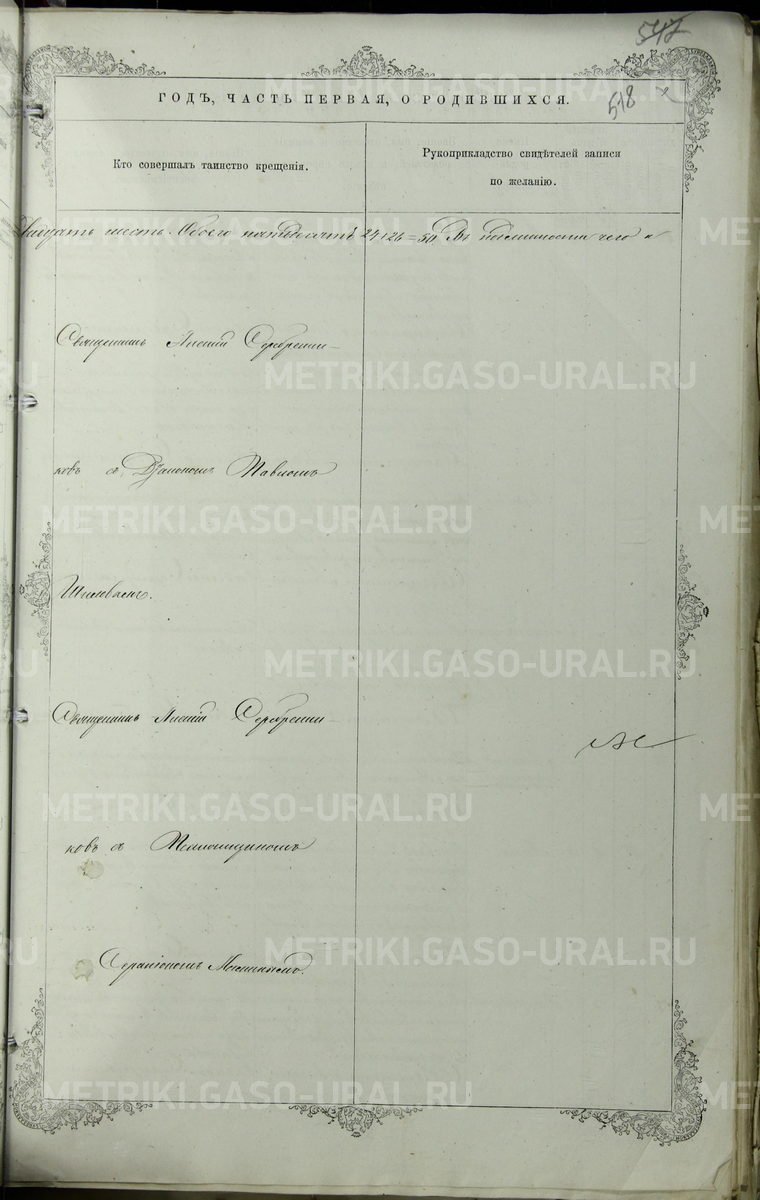 547
518
ГОДЪ, ЧАСТЬ ПЕРВАЯ, О РОДИВШИХСЯ.
Кто совершалъ таинство крещенія.
Рукоприкладство свидѣтелей записи
по желанію.
Двадцать шесть. Обоего пятьдесятъ 24+26=50 Въ чего и
Священникъ Алексій Серебренни-
ковъ съ Діакономъ Павломъ
Священникъ Алексій Серебренни-
ковъ съ
METRIKI.GASO-URAL.RU